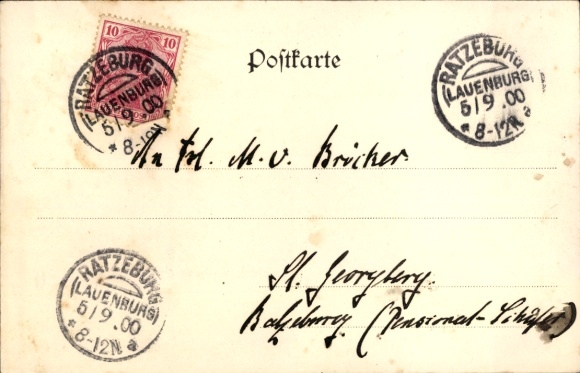 10 10
Postkarte
RATZEBURG
(LAUENBURG)
5/9.00
* 8-12N
RATZEBURG
(LAUENBURG)
5/9.00
* 8-12N a
An Frl. M. v. Bröcker.
St. Georgberg.
Ratzeburg (Pensionat
RATZEBURG
(LAUENBURG)
5/9.00
* 8-12N a